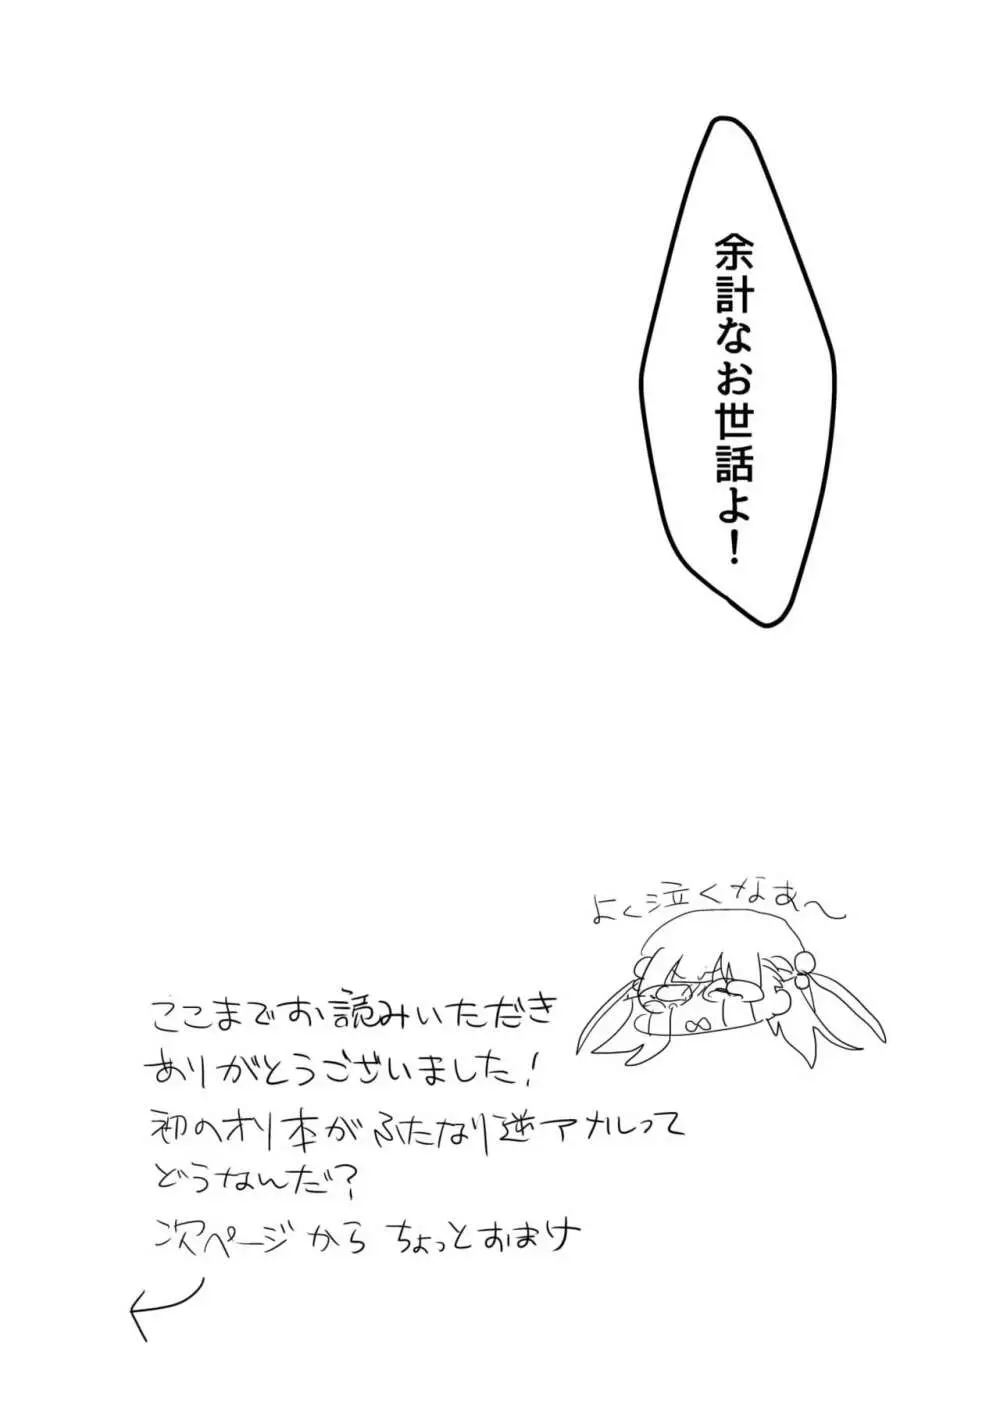 余計なお世話よ！
よく泣くなあ〜
ここまでお読みいただき
ありがとうございました！
初のオリ本がふたなり逆アナルって
どうなんだ？
次ページから ちょっとおまけ